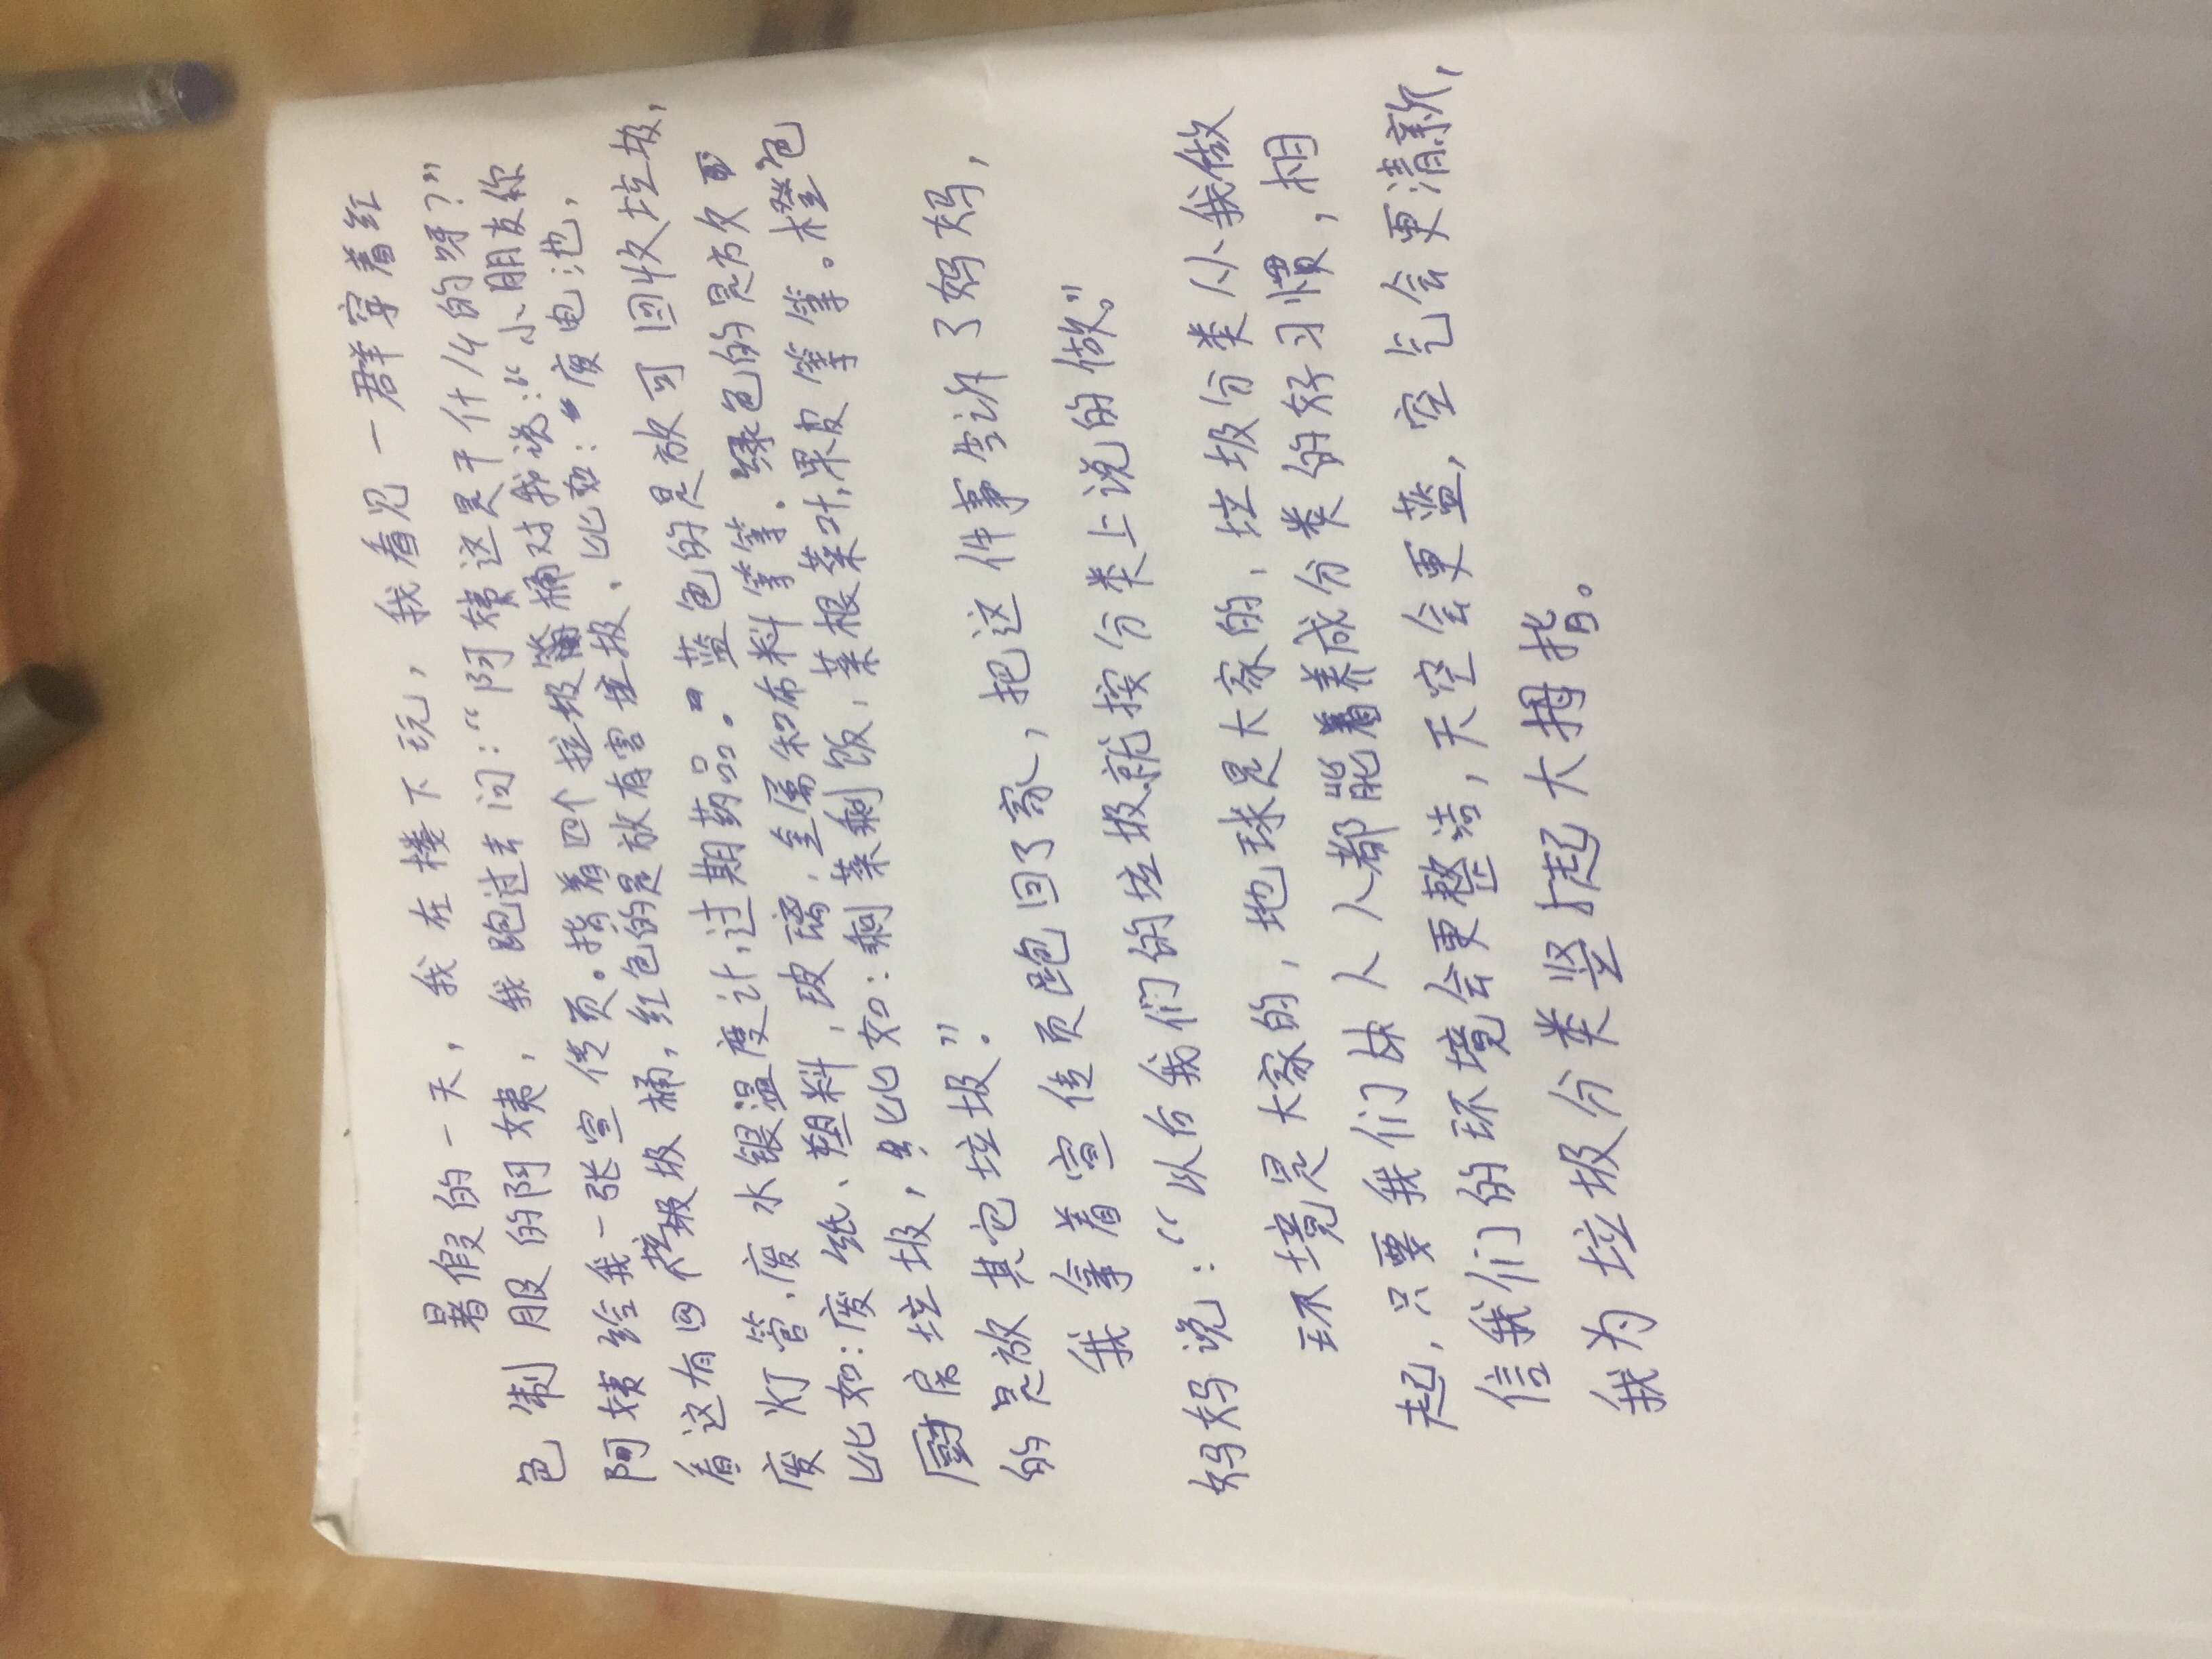 暑假的一天，我在楼下玩，我看见一群穿着红
色制服的阿姨，我跑过去问：“阿姨这是干什么的呀？”
阿姨给我一张宣传页。指着四个垃圾桶对我说：“小朋友你
看这有四垃圾桶，红色的是放有害垃圾、比如：废电池，
废灯管、废水银温度计，过期药品。蓝色的是放可回收垃圾，
比如：废纸、塑料，玻璃，金属和布料等等．绿色的是放
厨房垃圾，比如：剩菜剩饭，菜根菜叶，果皮等等。橙色
的是放其它垃圾”。
我拿着宣传页跑回了家，把这件事告诉了妈妈，
妈妈说：“以后我们的垃圾就按分类上说的做。”
环境是大家的，地球是大家的，垃圾分类从我做
起，只要我们人人都能养成分类的好习惯，相
信我们的环境会更整洁，天空会更蓝，空气会更清新，
我为垃圾分类竖起大拇指。